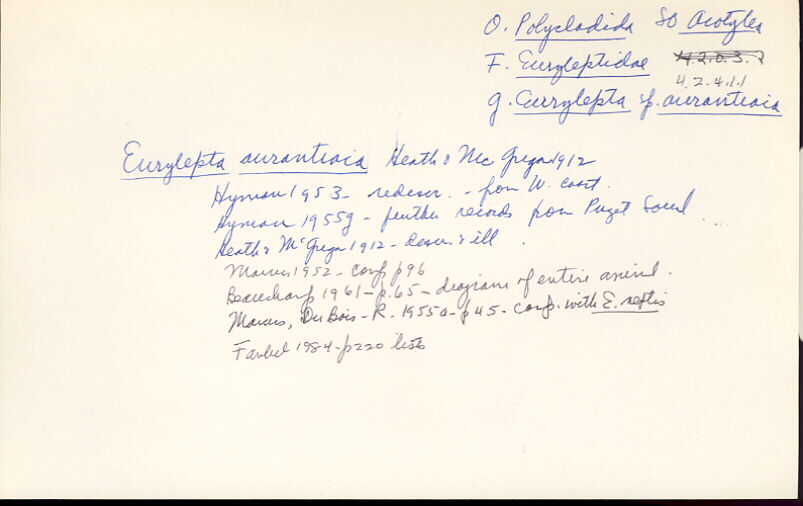 O. Polycladida SO Acotylea
F. Euryleptidae 4.2.0.3.2
4.2.4.1.1
g. Eurylepta sp. aurantiaca
Eurylepta aurantiaca Heath & McGregor 1912
Hyman 1953 - redescr. - from W. coast.
Hyman 1955g - further records from Puget Sound
Heath & McGregor 1912 - descr & ill.
Marcus 1952 - conf p 96
Beauchamp 1961 - p. 65 - diagram of entire animal.
Marcus, Du Bois-R. 1955a - p 45 - comp. with E.
Faubel 1984 - p 220 lists